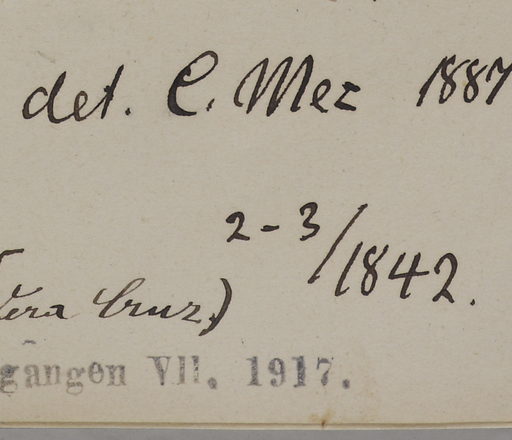 det. C. Mez 1887
2-3/1842.
Vera Cruz.)
gangen VII. 1917.